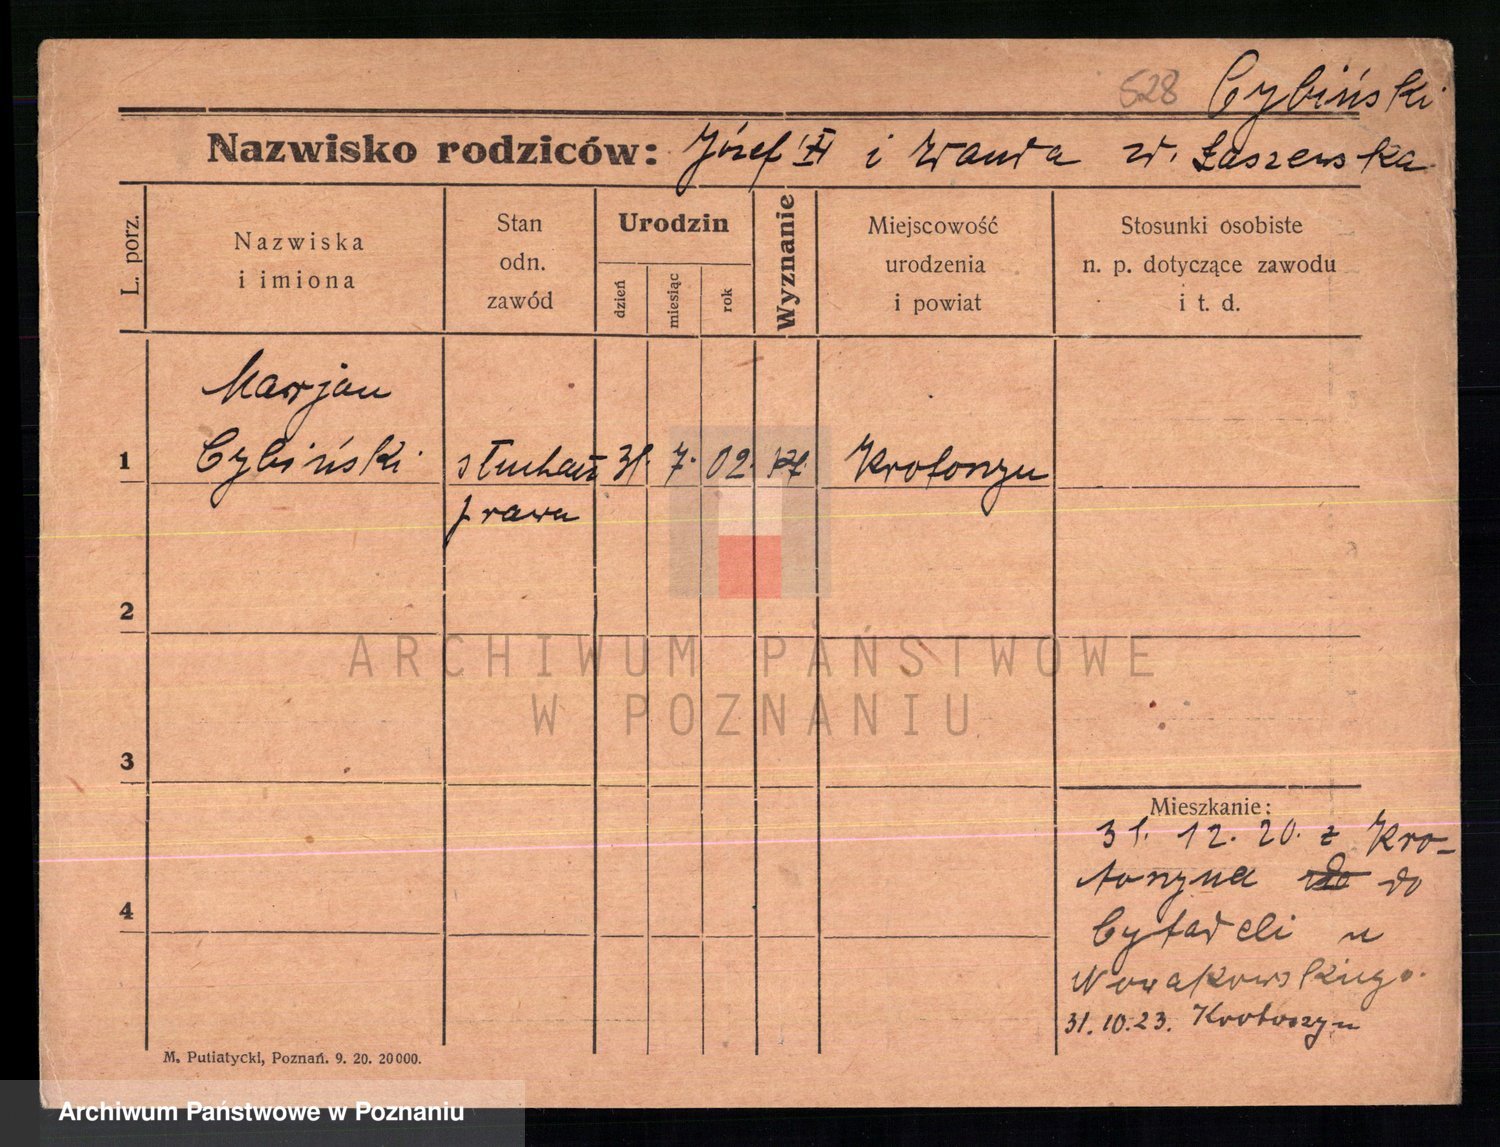 528 Cybiński
Nazwisko rodziców: Józef i Wanda z d. Łaszewska
L. porz.
Nazwiska
i imiona
Stan
odn.
zawód
Urodzin
dzień
miesiąc
rok
Wyznanie
Miejscowość
urodzenia
i powiat
Stosunki osobiste
n. p. dotyczące zawodu
i t. d.
Marjan
1 Cybiński słuchacz 31. 7. 02. kt. Krotoszyn
prawa
2
3
4
Mieszkanie:
31. 12. 20. z Kro-
toszyna do do
Cytadeli u
Nowakowskiego.
31. 10. 23. Krotoszyn
M. Putiatycki, Poznań. 9. 20. 20000.
ARCHIWUM PAŃSTWOWE
W POZNANIU
Archiwum Państwowe w Poznaniu